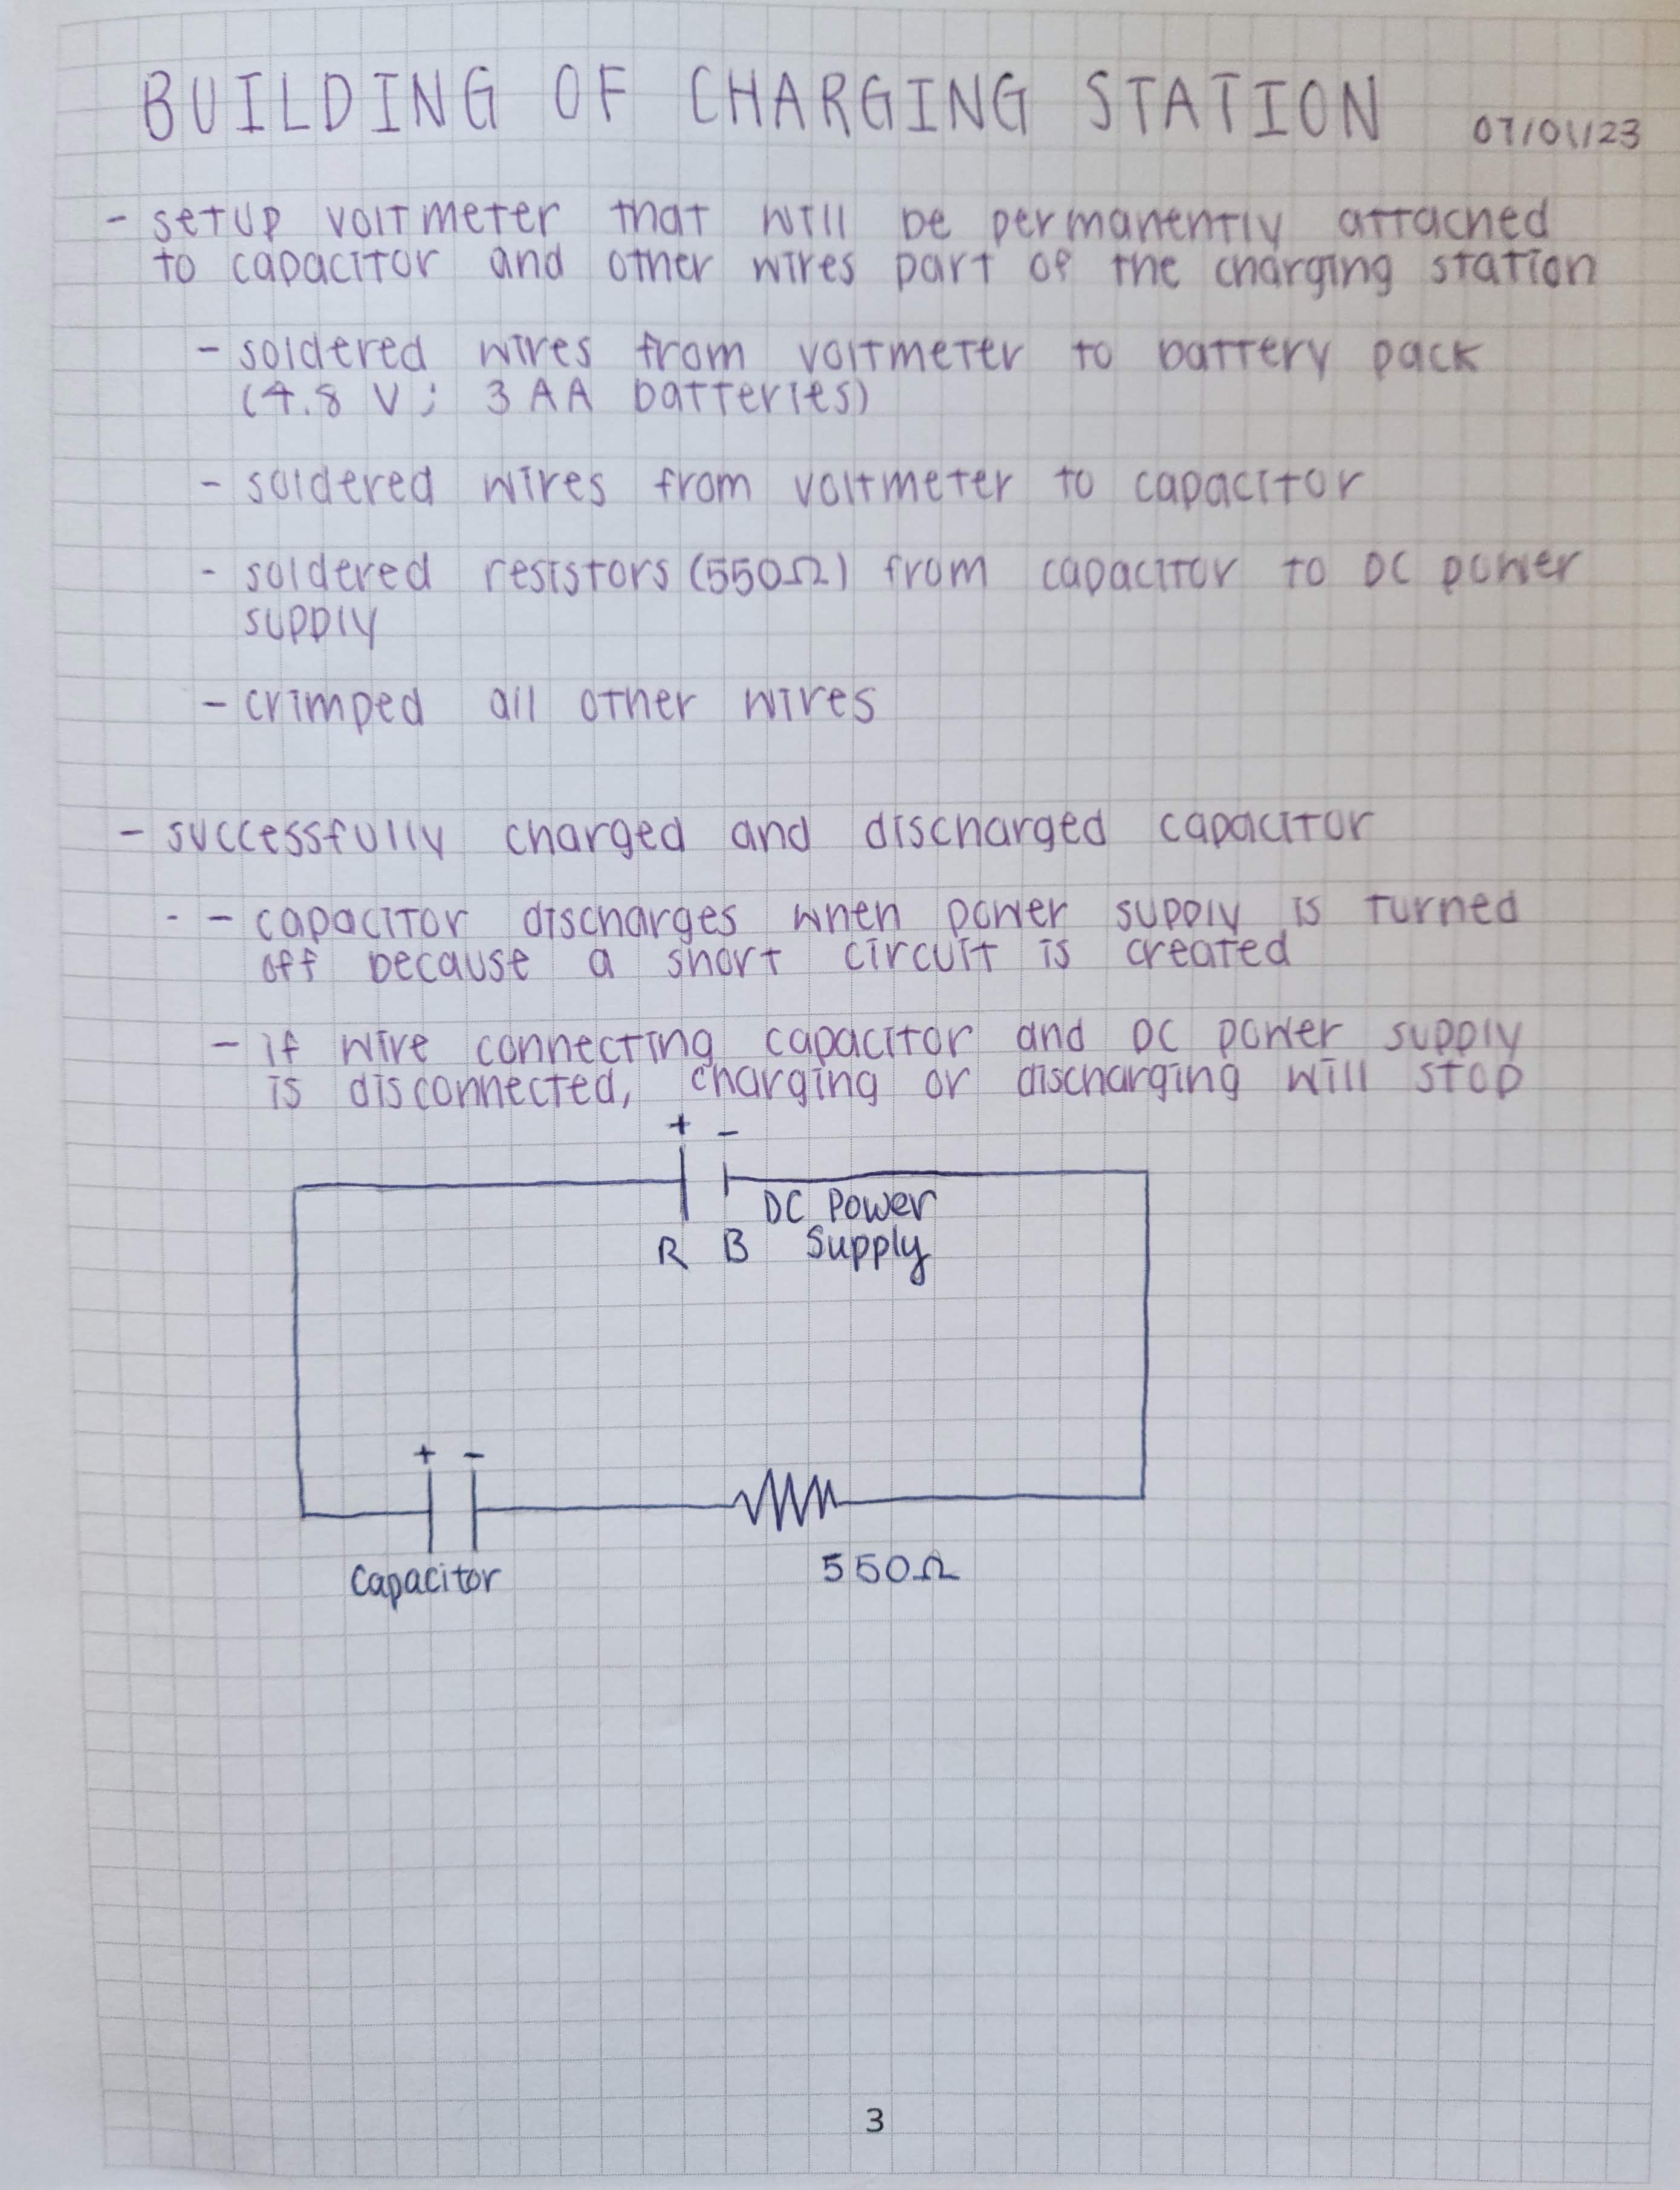 BUILDING OF CHARGING STATION 07/01/23
- setup voltmeter that will be permanently attached
to capacitor and other wires part of the charging station
- soldered wires from voltmeter to battery pack
(4.8 V; 3 AA batteries)
- soldered wires from voltmeter to capacitor
- soldered resistors (550Ω) from capacitor to DC power
supply
- crimped all other wires
- successfully charged and discharged capacitor
- - capacitor discharges when power supply is turned
off because a short circuit is created
- if wire connecting capacitor and DC power supply
is disconnected, charging or discharging will stop
+ -
DC Power
R B Supply
+ -
Capacitor
550Ω
3